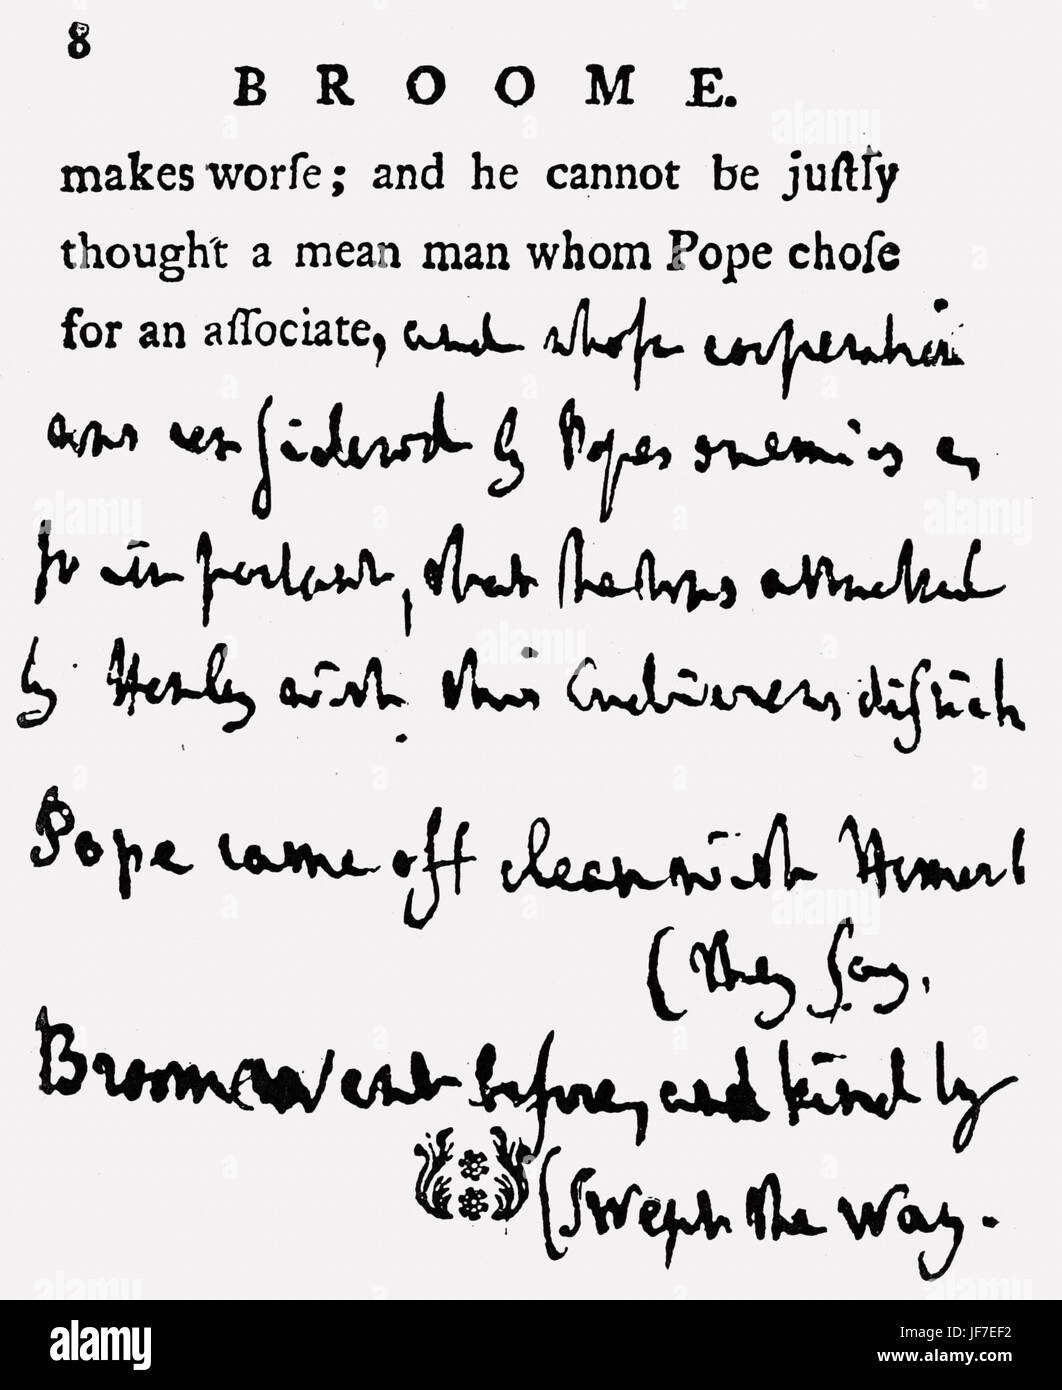 8
BROOME.
makes worſe; and he cannot be juſtly
thought a mean man whom Pope choſe
for an aſſociate, and whoſe cooperation
was conſidered by Popes enemies as
ſo important, that he was attacked
by Henley with this ludicrous diſtich
Pope came off clean with Homer
(they ſay.
Broome went before, and kindly
(Swept the way.
alamy
Image ID: JF7EF2
www.alamy.com